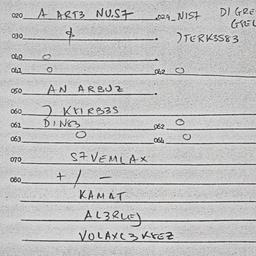 020 A ART3 NU.S7 029 NIS7 DIGRE
GTEL
030 )TERK3S83
040 O
041 O 042 O
050 AN ARBUZ
060 ) KKIRB3S
061 DIN83 062 O
063 O 064 O
070 S7VEMLAX
080 + / -
KAMAT
AL3RLEJ
VOLAXC3KFEZ